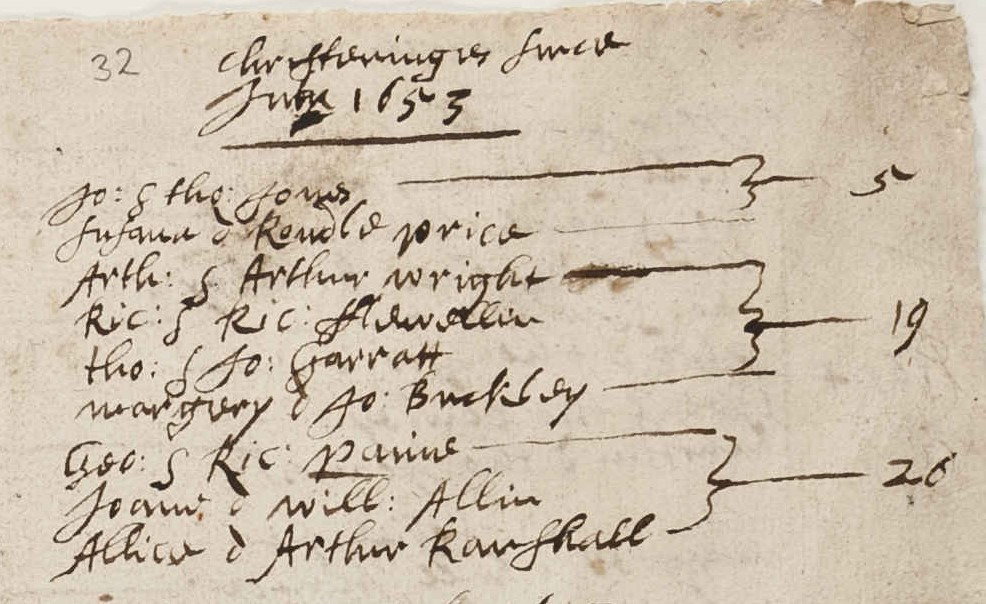 32
Christeninges since
June 1653
Jo: s Tho: Jones 5
Susana d Rondle Price
Arth: s Arthur Wright
Ric: s Ric: fflewellin 19
Tho: s Jo: Garratt
Margery d Jo: Buckley
Geo: s Ric: Panne
Joane d Will: Allin 26
Allice d Arthur